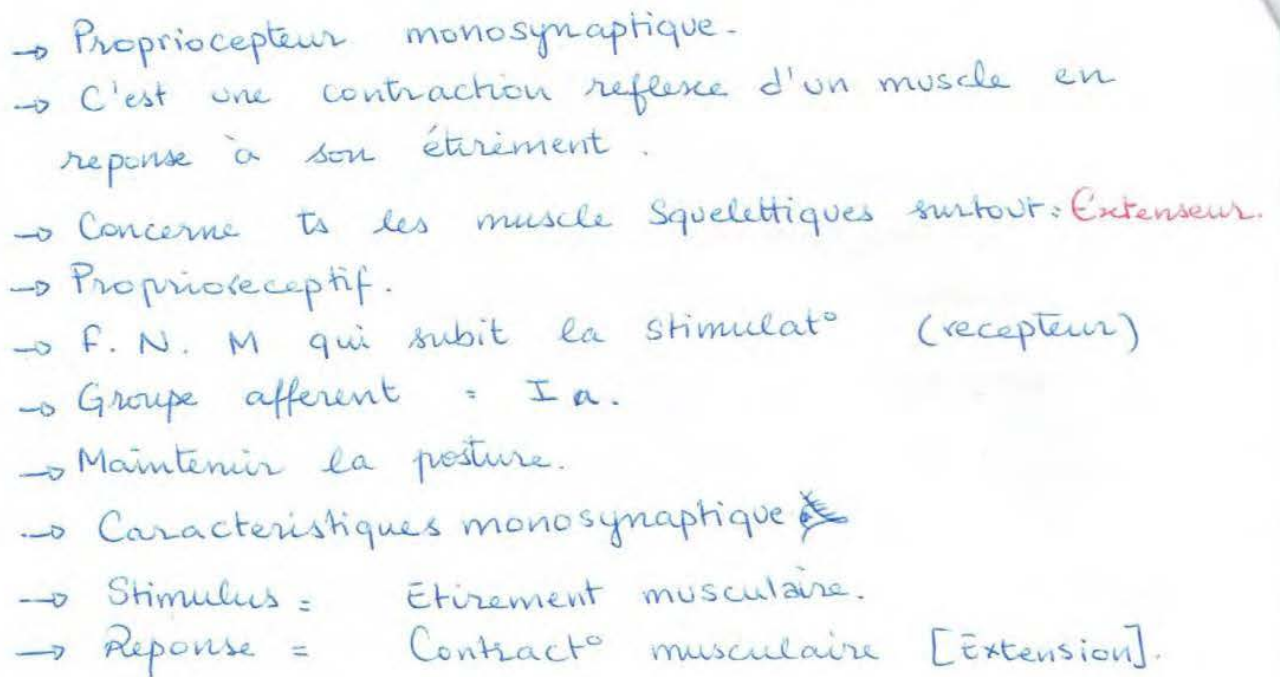 → Propriocepteur monosynaptique.
→ C'est une contraction reflexe d'un muscle en
reponse à son étirement.
→ Concerne ts les muscle Squelettiques surtout: Extenseur.
→ Proprioceptif.
→ F. N. M qui subit la stimulat° (recepteur)
→ Groupe afferent = Ia.
→ Maintenir la posture.
→ Caracteristiques monosynaptique
→ Stimulus = Etirement musculaire.
→ Reponse = Contract° musculaire [Extension].